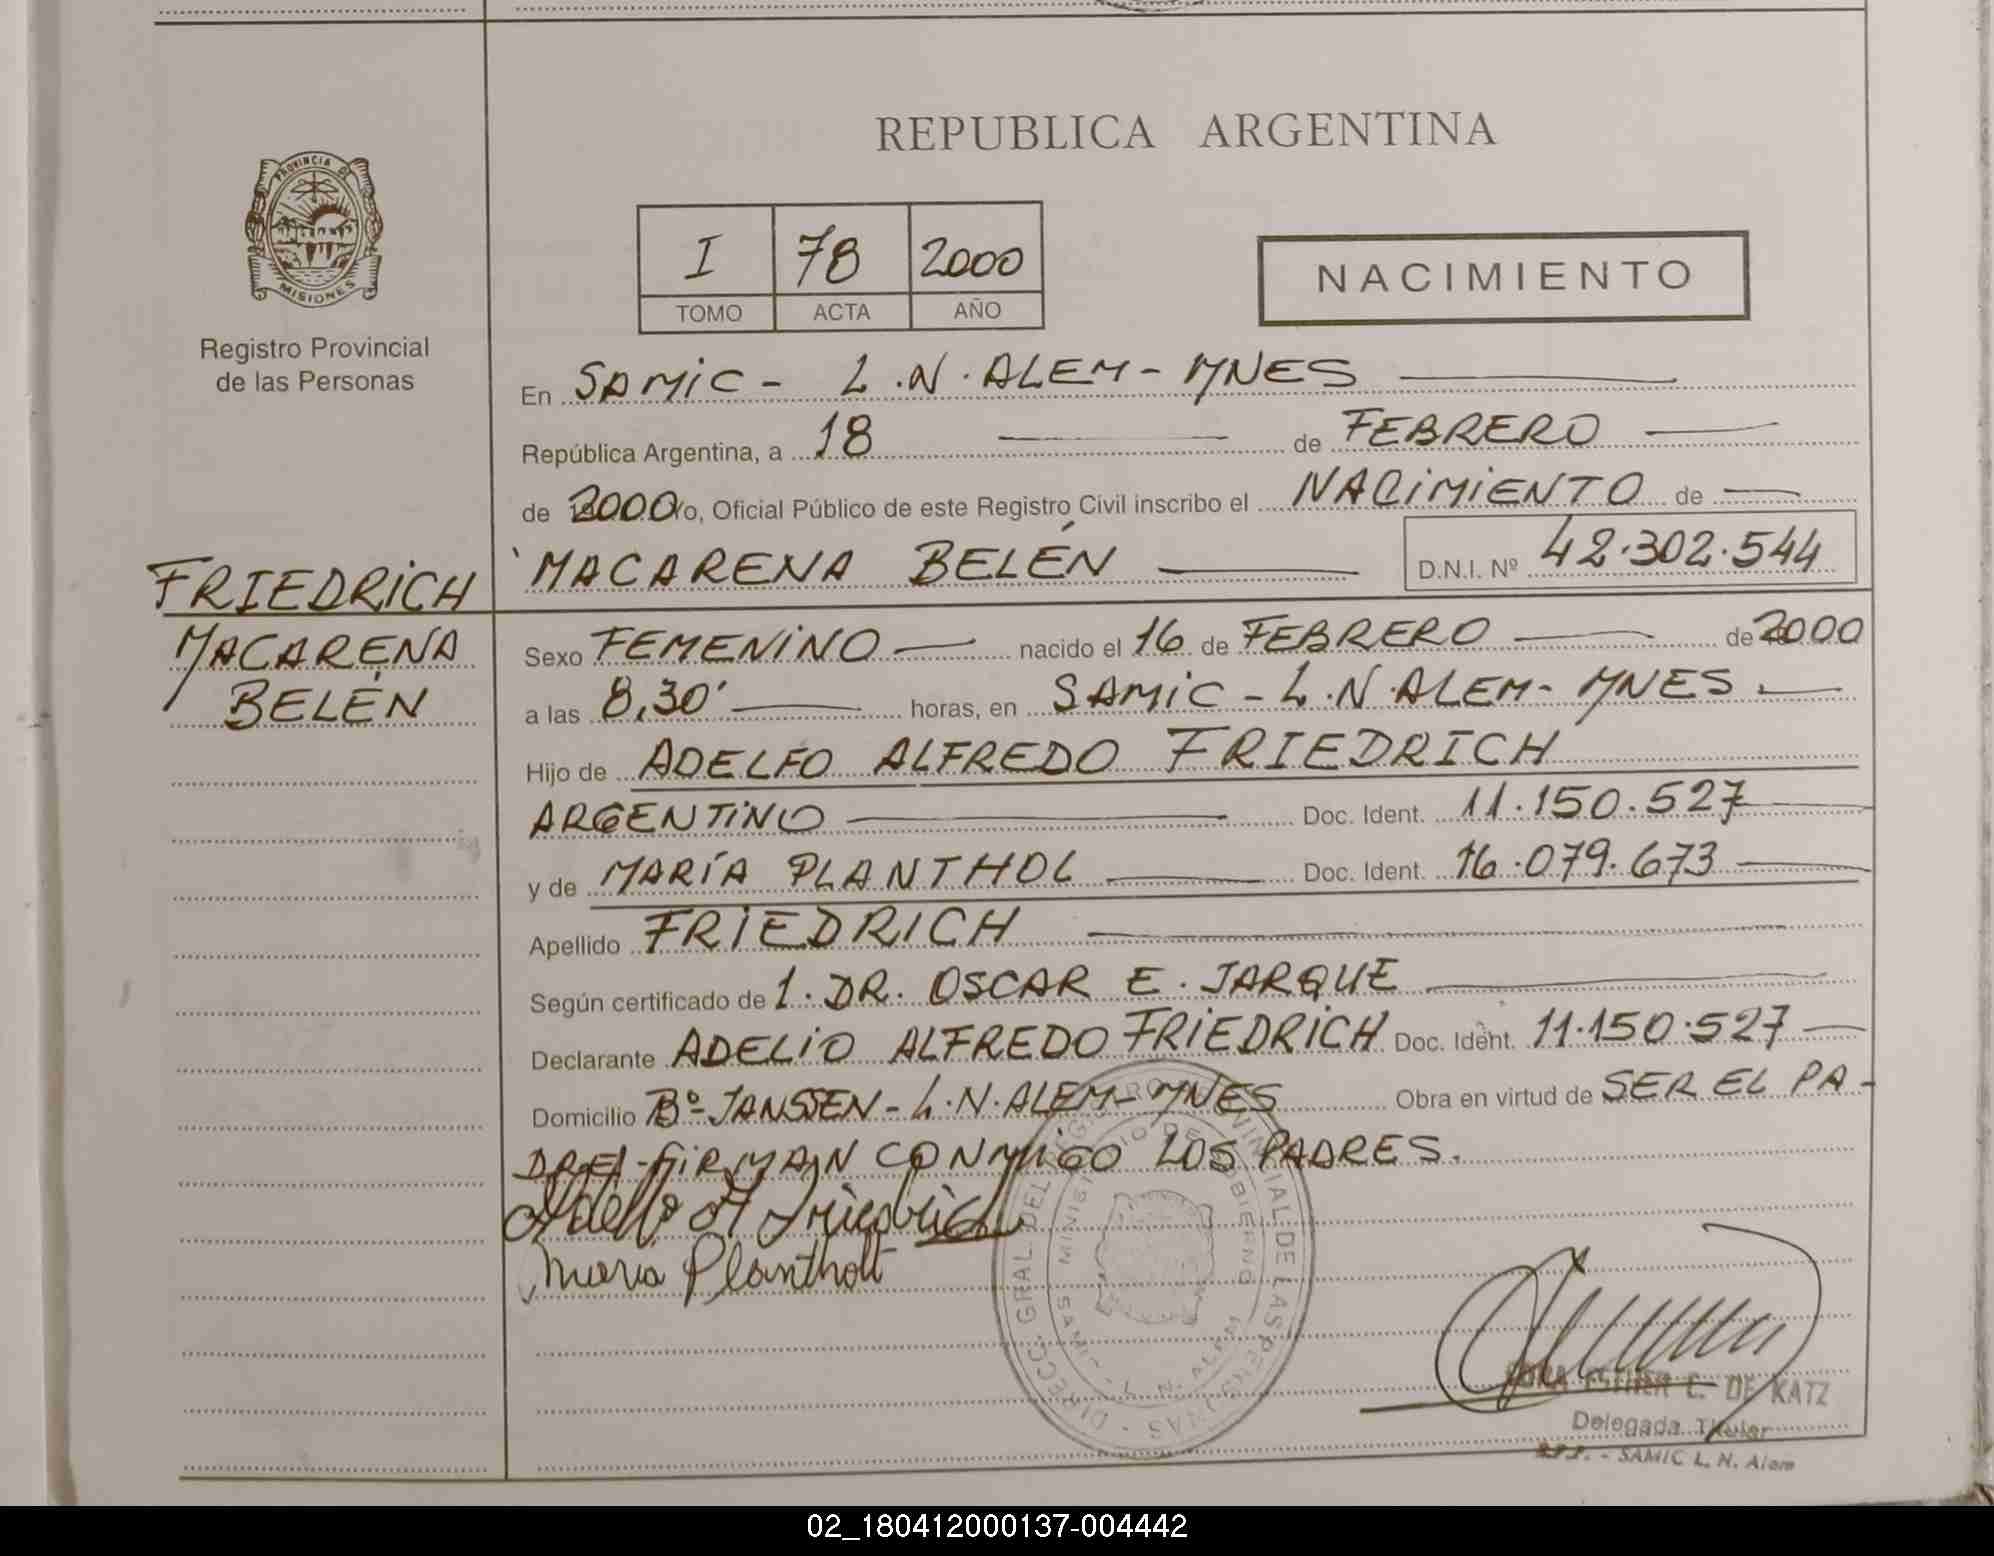 REPUBLICA ARGENTINA
PROVINCIA DE
MISIONES
Registro Provincial
de las Personas
I 78 2000
TOMO ACTA AÑO
NACIMIENTO
En SAMIC - L.N.ALEM - MNES
República Argentina, a 18 de FEBRERO
de 2000 Yo, Oficial Público de este Registro Civil inscribo el NACIMIENTO de
MACARENA BELÉN D.N.I. Nº 42.302.544
FRIEDRICH
MACARENA
BELÉN
Sexo FEMENINO nacido el 16 de FEBRERO de 2000
a las 8,30' horas, en SAMIC - L.N.ALEM - MNES
Hijo de ADELFO ALFREDO FRIEDRICH
ARGENTINO Doc. Ident. 11.150.527
y de MARÍA PLANTHOL Doc. Ident. 16.079.673
Apellido FRIEDRICH
Según certificado de 1. DR. OSCAR E. JARQUE
Declarante ADELIO ALFREDO FRIEDRICH Doc. Ident. 11.150.527
Domicilio Bº JANSSEN - L.N.ALEM - MNES Obra en virtud de SER EL PA-
DRE - FIRMAN CONMIGO LOS PADRES.
Adelfo A Friedrich
Maria Plantholt
DIRECC. GRAL. DEL REGISTRO PROVINCIAL DE LAS PERSONAS
MINISTERIO DE GOBIERNO
SAMIC - L. N. ALEM
ESTHER C. DE KATZ
Delegada Titular
- SAMIC L. N. Alem
02_180412000137-004442